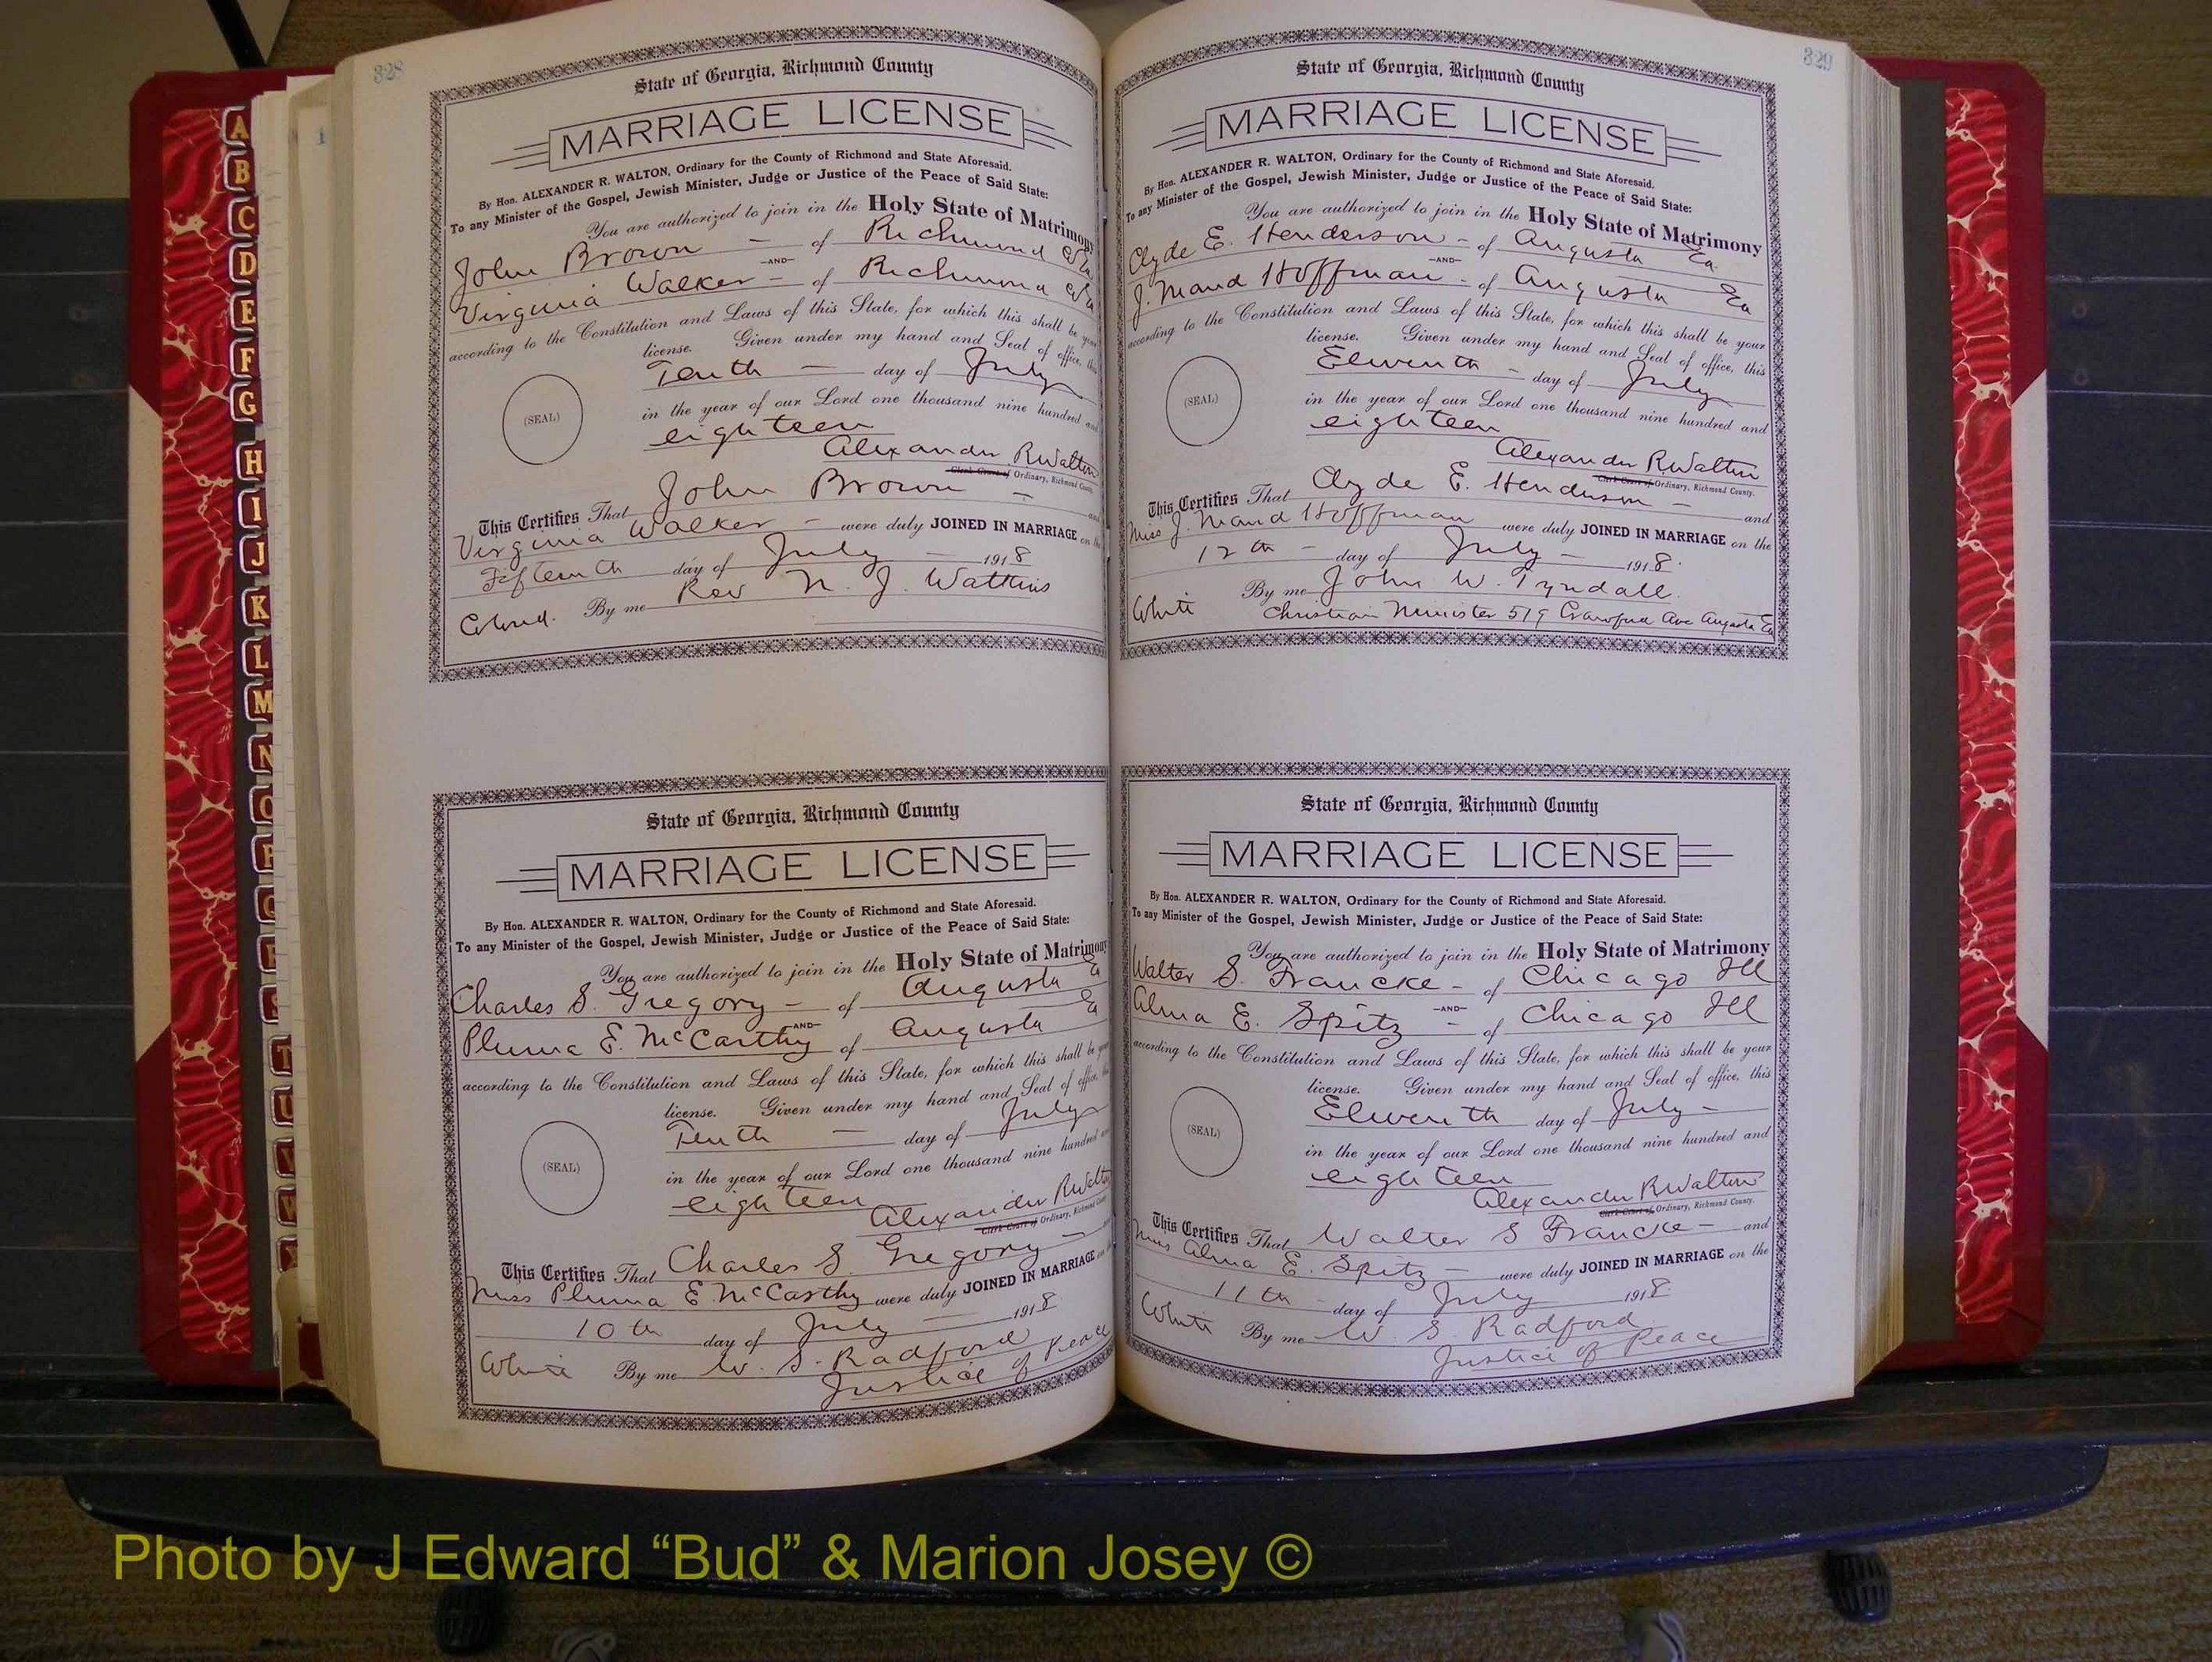 328
State of Georgia, Richmond County
MARRIAGE LICENSE
By Hon. ALEXANDER R. WALTON, Ordinary for the County of Richmond and State Aforesaid.
To any Minister of the Gospel, Jewish Minister, Judge or Justice of the Peace of Said State:
You are authorized to join in the Holy State of Matrimony
John Brown - of Richmond Co Ga
-AND-
Virginia Walker - of Richmond Co Ga
according to the Constitution and Laws of this State, for which this shall be your
license. Given under my hand and Seal of office, this
Tenth - day of July
(SEAL)
in the year of our Lord one thousand nine hundred and
eighteen
Alexander R Walton
Clerk Court of Ordinary, Richmond County.
This Certifies That John Brown - and
Virginia Walker - were duly JOINED IN MARRIAGE on the
Fifteenth day of July - 1918
Colored. By me Rev N. J. Watkins
State of Georgia, Richmond County
MARRIAGE LICENSE
By Hon. ALEXANDER R. WALTON, Ordinary for the County of Richmond and State Aforesaid.
To any Minister of the Gospel, Jewish Minister, Judge or Justice of the Peace of Said State:
You are authorized to join in the Holy State of Matrimony
Charles S. Gregory - of Augusta Ga
-AND-
Pluma E. McCarthy of Augusta Ga
according to the Constitution and Laws of this State, for which this shall be your
license. Given under my hand and Seal of office, this
Tenth - day of July
(SEAL)
in the year of our Lord one thousand nine hundred and
eighteen
Alexander R Walton
Clerk Court of Ordinary, Richmond County
This Certifies That Charles S. Gregory -
Miss Pluma E McCarthy were duly JOINED IN MARRIAGE on the
10th day of July - 1918
White By me W. S. Radford
Justice of Peace
329
State of Georgia, Richmond County
MARRIAGE LICENSE
By Hon. ALEXANDER R. WALTON, Ordinary for the County of Richmond and State Aforesaid.
To any Minister of the Gospel, Jewish Minister, Judge or Justice of the Peace of Said State:
You are authorized to join in the Holy State of Matrimony
Clyde E. Henderson - of Augusta Ga.
-AND-
J. Maud Hoffman - of Augusta Ga
according to the Constitution and Laws of this State, for which this shall be your
license. Given under my hand and Seal of office, this
Eleventh - day of July
(SEAL)
in the year of our Lord one thousand nine hundred and
eighteen
Alexander R. Walton
Clerk Court of Ordinary, Richmond County.
This Certifies That Clyde E. Henderson - and
Miss J. Maud Hoffman were duly JOINED IN MARRIAGE on the
12th - day of July - 1918.
White By me John W. Tyndall.
Christian Minister 519 Crawford Ave Augusta Ga
State of Georgia, Richmond County
MARRIAGE LICENSE
By Hon. ALEXANDER R. WALTON, Ordinary for the County of Richmond and State Aforesaid.
To any Minister of the Gospel, Jewish Minister, Judge or Justice of the Peace of Said State:
You are authorized to join in the Holy State of Matrimony
Walter S. Francke - of Chicago Ill
-AND-
Alma E. Spitz - of Chicago Ill
according to the Constitution and Laws of this State, for which this shall be your
license. Given under my hand and Seal of office, this
Eleventh day of July -
(SEAL)
in the year of our Lord one thousand nine hundred and
eighteen
Alexander R Walton
Clerk Court of Ordinary, Richmond County.
This Certifies That Walter S Francke - and
Miss Alma E. Spitz - were duly JOINED IN MARRIAGE on the
11th - day of July 1918.
White By me W. S. Radford
Justice of Peace
A
B
C
D
E
F
G
H
I
J
K
L
M
N
O
P
Q
R
S
T
U
V
W
Photo by J Edward “Bud” & Marion Josey ©